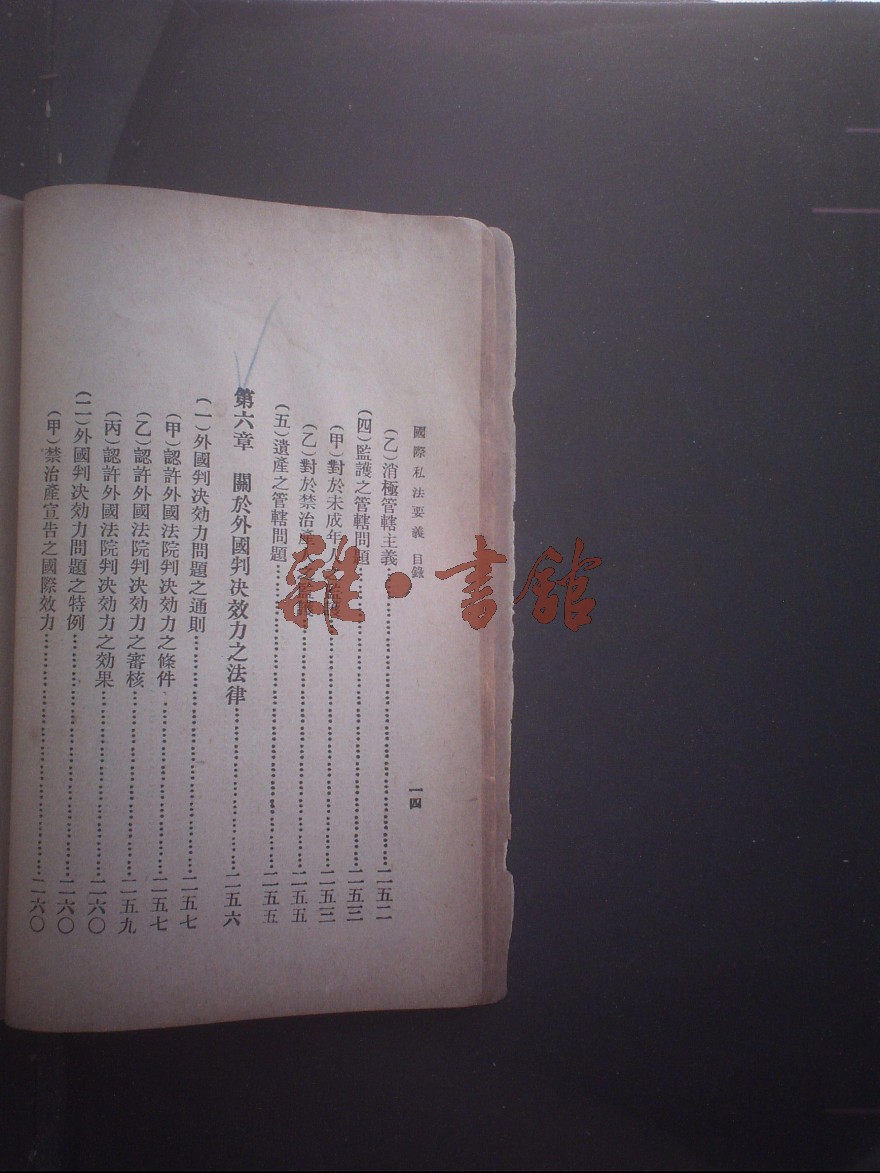 國際私法要義 目錄
一四
(乙)消極管轄主義……二五二
(四)監護之管轄問題……二五三
(甲)對於未成年人……二五三
(乙)對於禁治產……二五五
(五)遺產之管轄問題……二五五
第六章 關於外國判决效力之法律……二五六
(一)外國判决効力問題之通則……二五七
(甲)認許外國法院判决効力之條件……二五七
(乙)認許外國法院判决効力之審核……二五九
(丙)認許外國法院判决効力之効果……二六〇
(二)外國判决効力問題之特例……二六〇
(甲)禁治產宣告之國際效力……二六〇
雜·書館